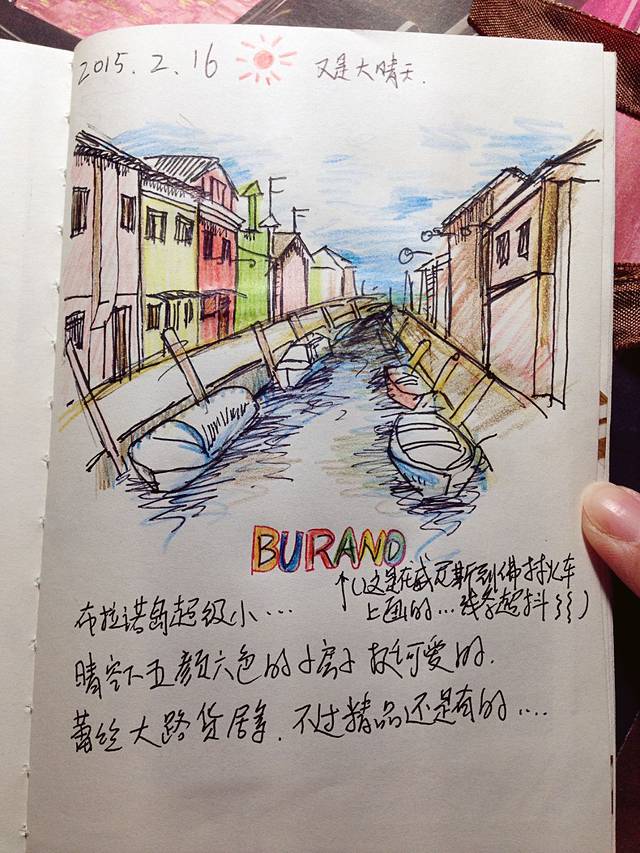 2015.2.16 又是大晴天.
BURANO
↑(这是在威尼斯到佛村火车
上画的...线条超抖〻)
布拉诺岛超级小....
晴空下五颜六色的小房子挺可爱的.
蕾丝大路货居多.不过精品还是有的....